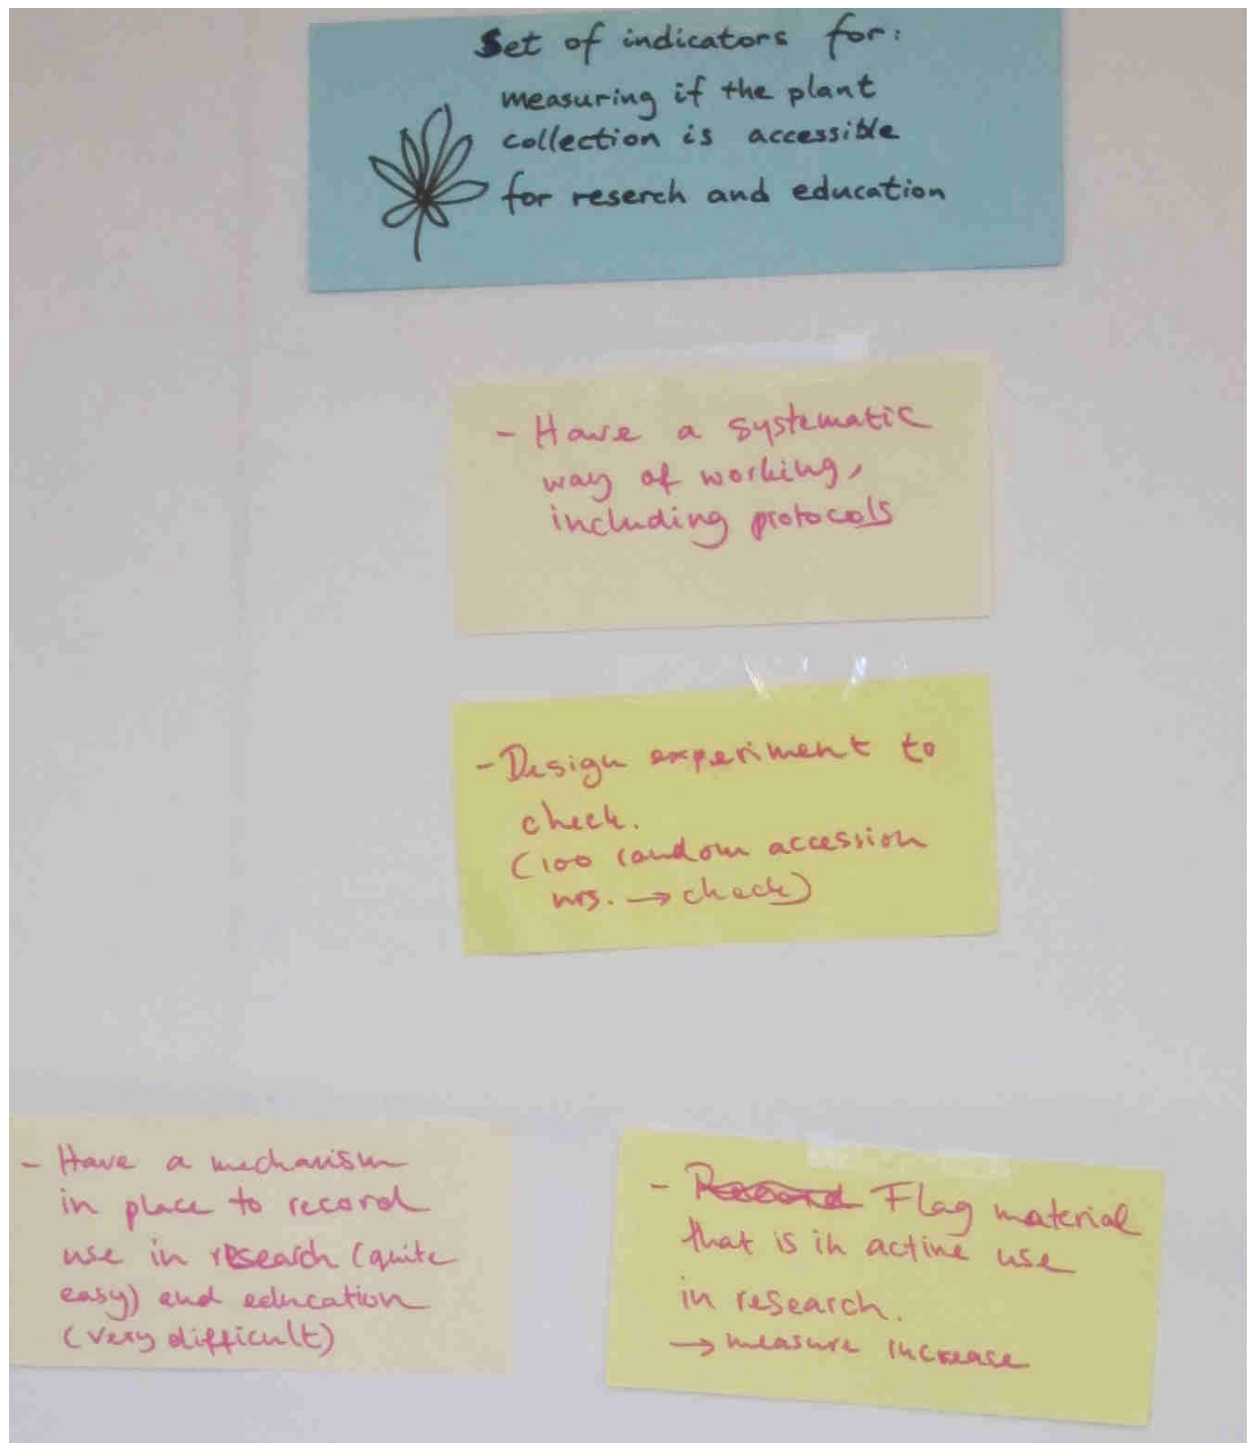 Set of indicators for:
measuring if the plant
collection is accessible
for reserch and education
- Have a systematic
way of working,
including protocols
- Design experiment to
check.
(100 random accession
nrs. → check)
- Have a mechanism
in place to record
use in research (quite
easy) and education
(very difficult)
- Record Flag material
that is in active use
in research.
→ measure increase